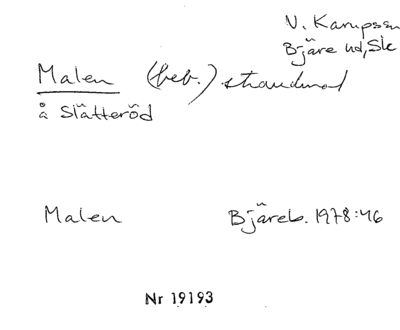 V. Karupssn
Bjäre hd, Sk
Malen (beb.) strandmad
å Slätteröd
Malen Bjäreb. 1978:46
Nr 19193